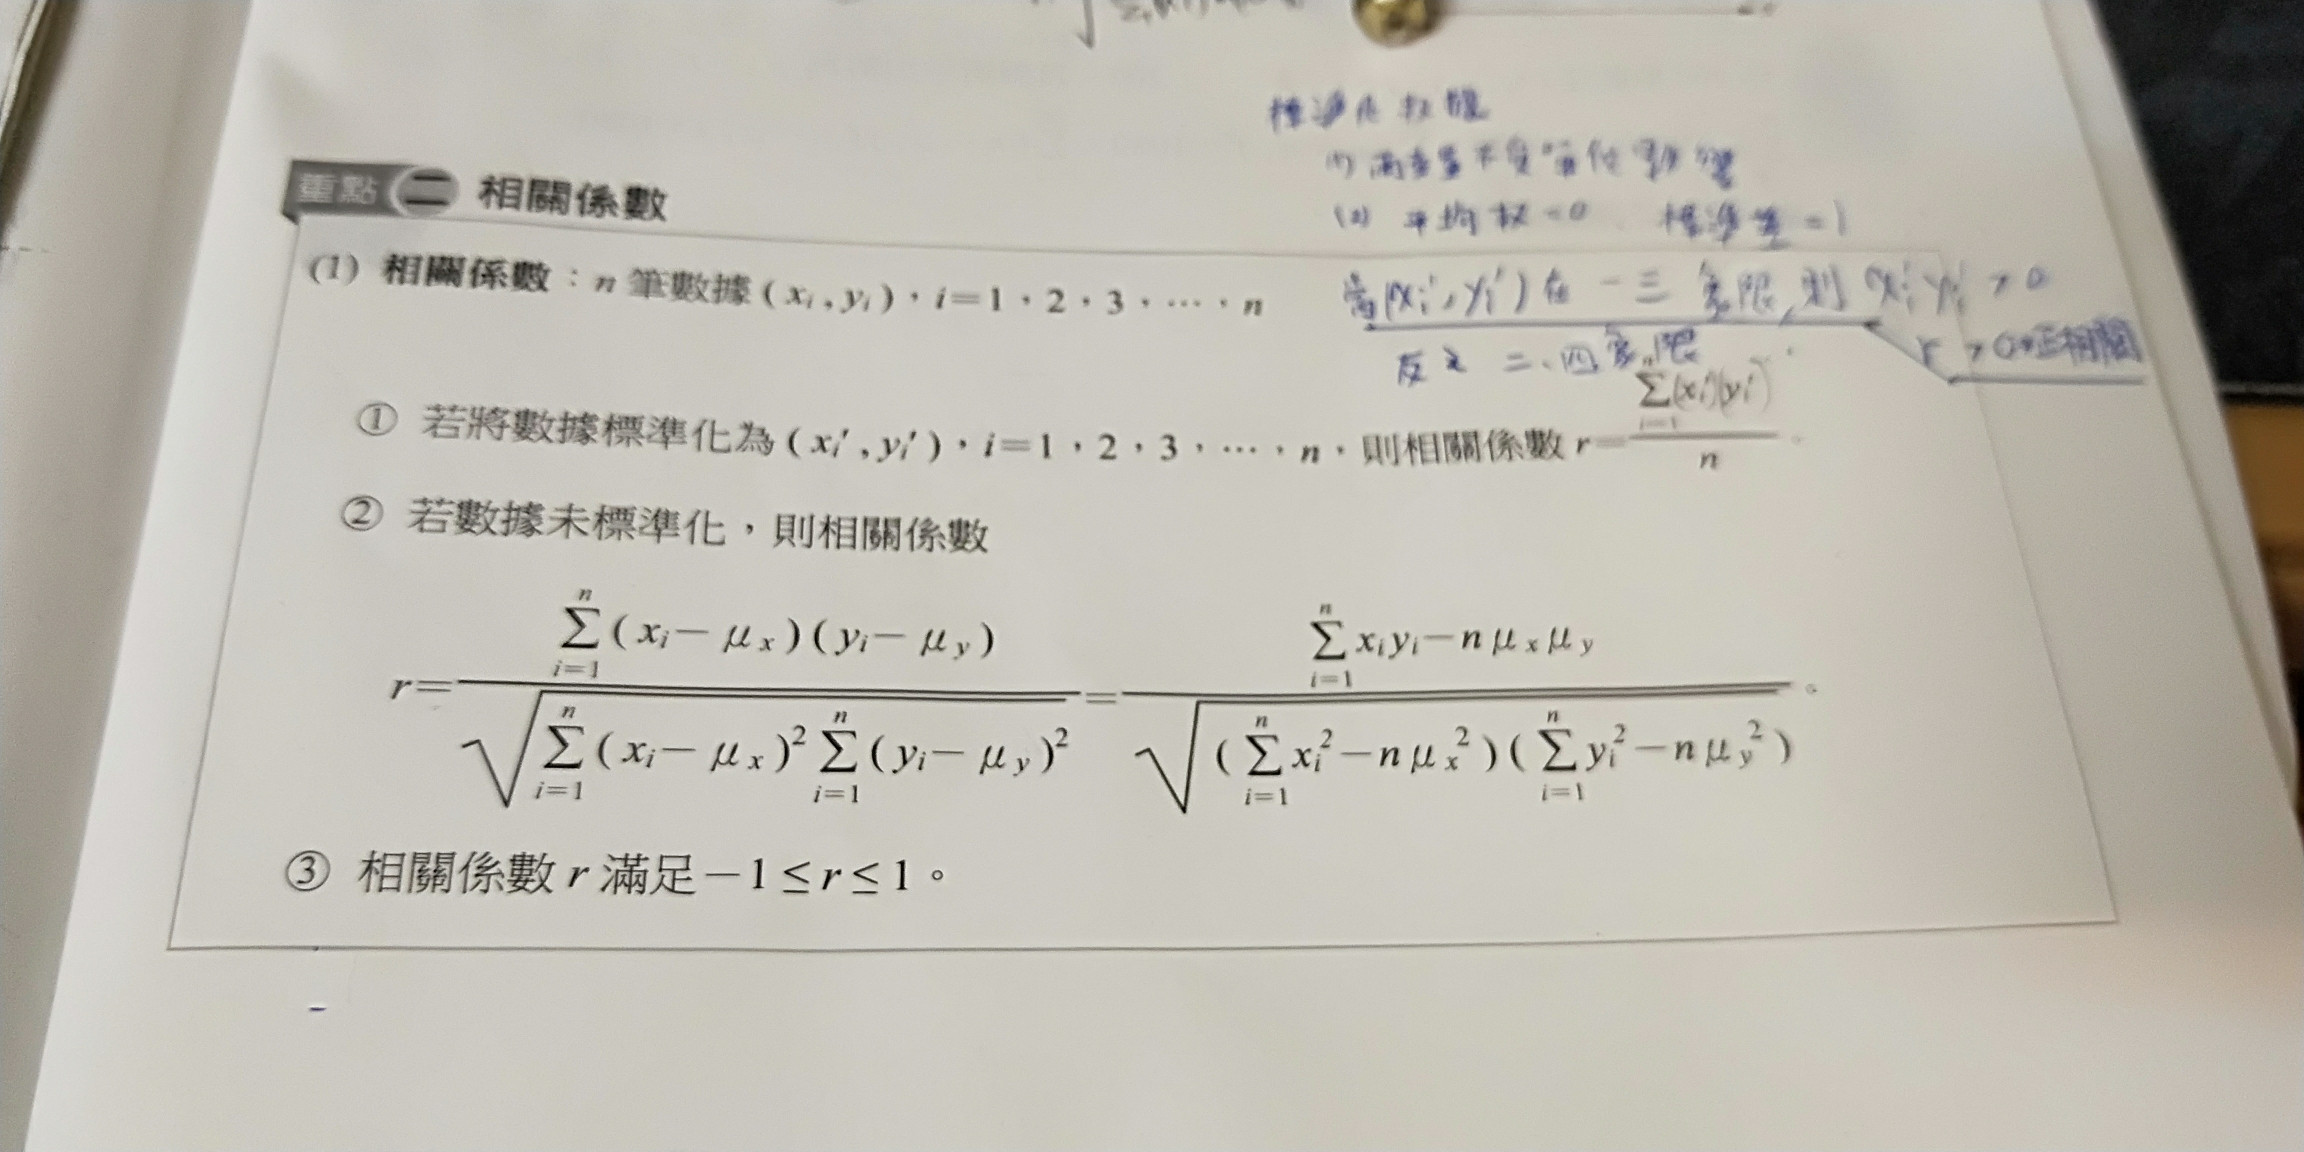 標準化數據
(1) 兩變量不受單位影響
(2) 平均數=0 標準差=1
重點 二 相關係數
(1) 相關係數：n 筆數據 ( xᵢ , yᵢ )，i＝1，2，3，…，n
當(xᵢ′, yᵢ′) 在一三象限, 則 xᵢ′yᵢ′ > 0
r > 0 正相關
反之 二、四象限
① 若將數據標準化為 ( xᵢ′ , yᵢ′ )，i＝1，2，3，…，n，則相關係數 r＝\frac{\sum_{i=1}^{n}(xᵢ′)(yᵢ′)}{n}。
② 若數據未標準化，則相關係數
r＝\frac{\sum_{i=1}^{n}(xᵢ－μₓ)(yᵢ－μ_y)}{\sqrt{\sum_{i=1}^{n}(xᵢ－μₓ)²\sum_{i=1}^{n}(yᵢ－μ_y)²}}＝\frac{\sum_{i=1}^{n}xᵢyᵢ－nμₓμ_y}{\sqrt{(\sum_{i=1}^{n}xᵢ²－nμₓ²)(\sum_{i=1}^{n}yᵢ²－nμ_y²)}}。
③ 相關係數 r 滿足－1≤r≤1。